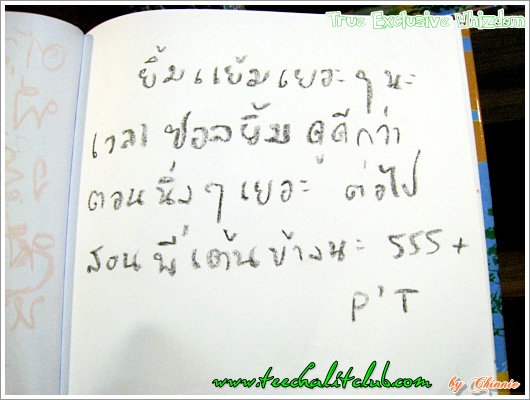 True Exclusive Whizdom
ยิ้มแย้มเยอะๆนะ
เวลา ซอลยิ้ม ดูดีกว่า
ตอนนิ่งๆเยอะ ต่อไป
สอนพี่เต้นบ้างนะ 555+
P'T
www.teechalitclub.com
by Chinnie